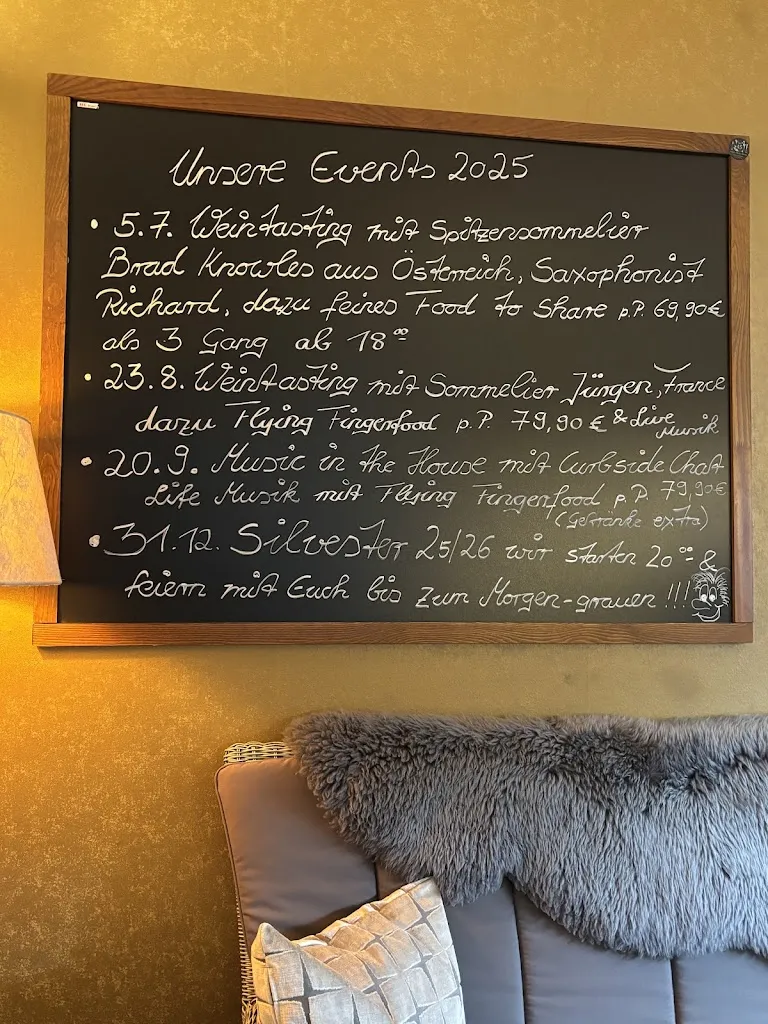 Unsere Events 2025
• 5.7. Weintasting mit Spitzensommelier
Brad Knowles aus Österreich, Saxophonist
Richard, dazu feines Food to Share p.P. 69,90€
als 3 Gang ab 18⁰⁰
• 23.8. Weintasting mit Sommelier Jürgen, France
dazu Flying Fingerfood p.P. 79,90€ & Live
Musik
• 20.9. Music in the House mit Curbside Chat
Life Musik mit Flying Fingerfood p.P. 79,90€
(Getränke extra)
• 31.12. Silvester 25/26 wir starten 20⁰⁰ &
feiern mit Euch bis zum Morgen-grauen !!!